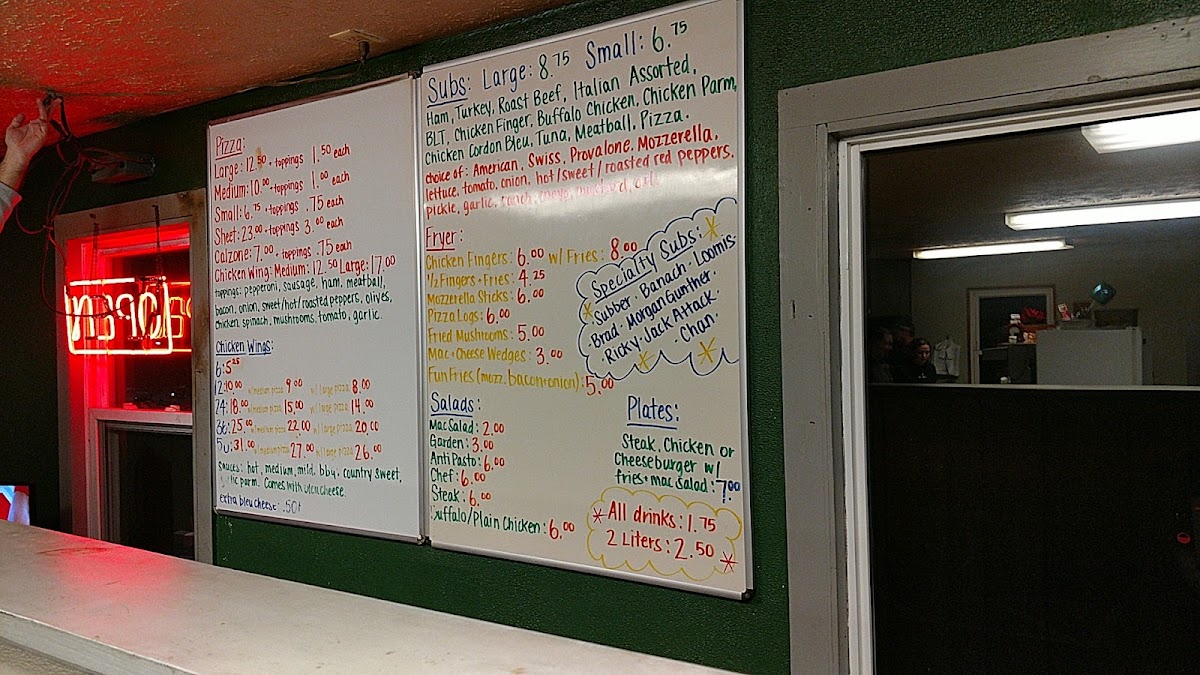 Pizza:
Large: 12.50 + toppings 1.50 each
Medium: 10.00 + toppings 1.00 each
Small: 6.75 + toppings .75 each
Sheet: 23.00 + toppings 3.00 each
Calzone: 7.00, toppings .75 each
Chicken Wing: Medium: 12.50 Large: 17.00
toppings: pepperoni, sausage, ham, meatball,
bacon, onion, sweet/hot/roasted peppers, olives,
chicken, spinach, mushrooms, tomato, garlic.
Chicken Wings:
6: 5.25
12: 10.00 w/ medium pizza 9.00 w/ large pizza 8.00
24: 18.00 w/ medium pizza 15.00 w/ large pizza 14.00
36: 25.00 w/ medium pizza 22.00 w/ large pizza 20.00
50: 31.00 w/ medium pizza 27.00 w/ large pizza 26.00
sauces: hot, medium, mild, bbq, country sweet,
parm. Comes with bleu cheese.
extra bleu cheese: .50¢
Subs: Large: 8.75 Small: 6.75
Ham, Turkey, Roast Beef, Italian Assorted,
BLT, Chicken Finger, Buffalo Chicken, Chicken Parm,
Chicken Cordon Bleu, Tuna, Meatball, Pizza.
choice of: American, Swiss, Provalone, Mozzerella,
lettuce, tomato, onion, hot/sweet/roasted red peppers.
pickle, garlic, ranch, mayo, mustard, oil.
Fryer:
Chicken Fingers: 6.00 w/ Fries: 8.00
1/2 Fingers + Fries: 4.25
Mozzerella Sticks: 6.00
Pizza Logs: 6.00
Fried Mushrooms: 5.00
Mac + Cheese Wedges: 3.00
Fun Fries (mozz. bacon + onion): 5.00
Specialty Subs:
· Subber · Banach · Loomis ·
Brad · Morgan Gunther ·
· Ricky · Jack Attack ·
· Chan ·
Salads:
Mac Salad: 2.00
Garden: 3.00
AntiPasto: 6.00
Chef: 6.00
Steak: 6.00
Buffalo/Plain Chicken: 6.00
Plates:
Steak, Chicken or
Cheeseburger w/
fries + mac salad: 7.00
All drinks: 1.75
2 Liters: 2.50
Open